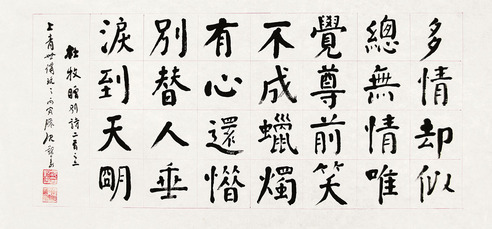 多情却似
總無情唯
覺尊前笑
不成蠟燭
有心還惜
別替人垂
淚到天明
杜牧贈別詩二首之二